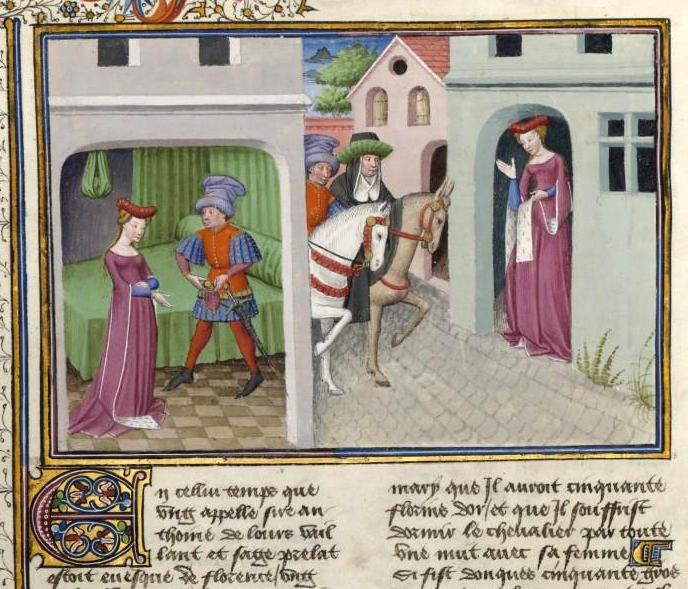 En cellui temps que
vng appelle sire an
thoine de lours vail
lant et sage prelat
estoit euesque de florence vng
mary que Il auroit cinquante
florins dor et que Il souffrist
dormir le cheualier par toute
vne nuit auec sa femme
Si fist donques cinquante gros